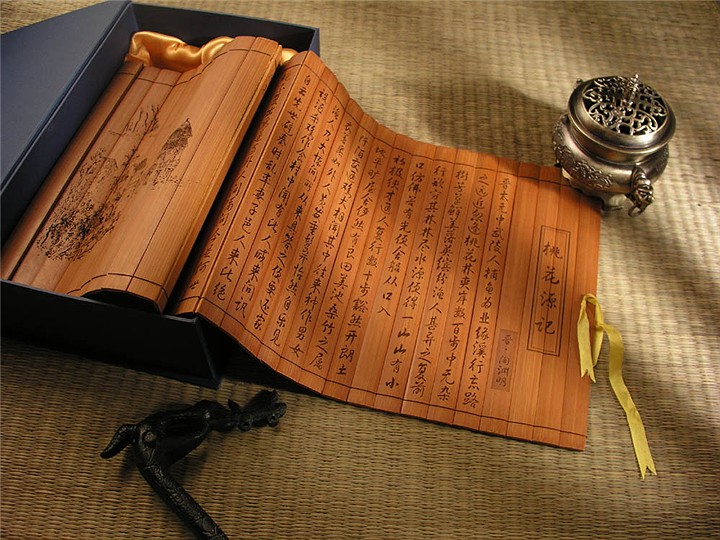 桃花源记
晋 陶渊明
晋太元中武陵人捕鱼为业缘溪行忘路
之远近忽逢桃花林夹岸数百步中无杂
树芳草鲜美落英缤纷渔人甚异之复前
行欲穷其林林尽水源便得一山山有小
口仿佛若有光便舍船从口入
初极狭才通人复行数十步豁然开朗土
地平旷屋舍俨然有良田美池桑竹之属
阡陌交通鸡犬相闻其中往来种作男女
衣着悉如外人黄发垂髫并怡然自乐见
渔人乃大惊问所从来具答之便要还家
设酒杀鸡作食村中闻有此人咸来问讯
自云先世避秦时乱率妻子邑人来此绝